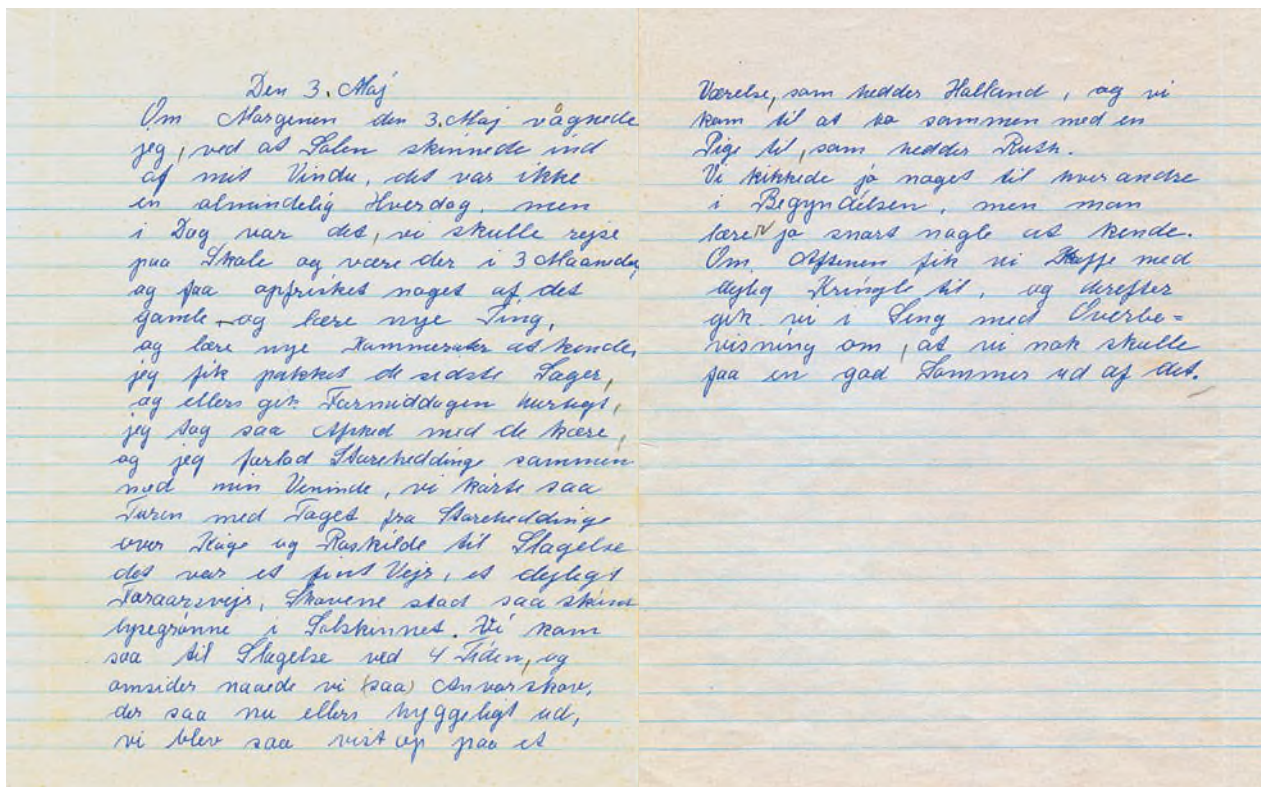 Den 3. Maj
Om Morgenen den 3. Maj vågnede
jeg, ved at Solen skinnede ind
af mit Vindu, det var ikke
en almindelig Hverdag, men
i Dag var det, vi skulle rejse
paa Skole og være der i 3 Maaneder,
og faa opfrisket noget af det
gamle og lære nye Ting,
og lære nye Kammerater at kende,
jeg fik pakket de sidste Sager,
og ellers gik Formiddagen hurtigt,
jeg tog saa Afsked med de kære,
og jeg forlod Storeheddinge sammen
med min Veninde, vi kørte saa
Turen med Toget fra Storeheddinge
over Køge og Roskilde til Slagelse
det var et fint Vejr, et dejligt
Foraarsvejr, Skovene stod saa skønt
lysegrønne i Solskinnet. Vi kom
saa til Slagelse ved 4 Tiden, og
omsider naaede vi (saa) Antvorskov,
der saa nu ellers hyggeligt ud,
vi blev saa vist op paa et
Værelse, som hedder Halland, og vi
kom til at bo sammen med en
Pige til, som hedder Ruth.
Vi kikkede jo noget til hverandre
i Begyndelsen, men man
lærer jo snart nogle at kende.
Om Aftenen fik vi Kaffe med
dejlig Kringle til, og derefter
gik vi i Seng med Overbe=
visning om, at vi nok skulle
faa en god Sommer ud af det.